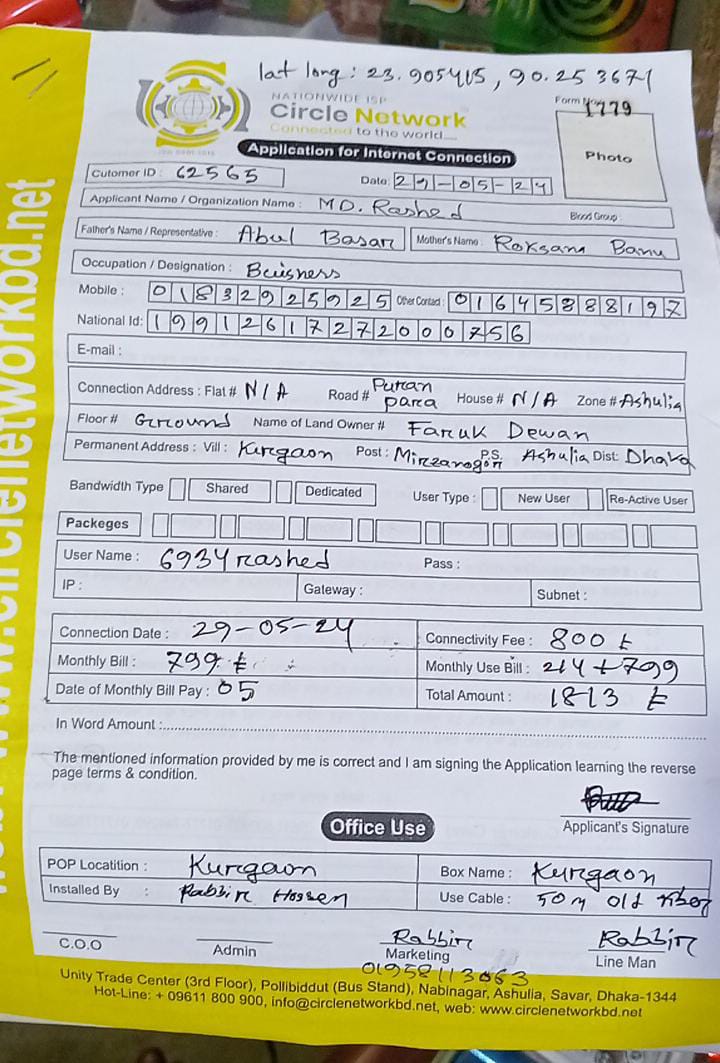 lat long : 23.905415, 90.253671
NATIONWIDE ISP
Form No. 1779
Circle Network
Connected to the world....
Photo
Application for Internet Connection
Cutomer ID : 62565
Date: 29-05-24
Applicant Name / Organization Name : MD. Rashed Blood Group :
Father's Name / Representative : Abul Basar Mother's Name : Roksana Banu
Occupation / Designation : Beisness
Mobile : 01832925925 Other Contact : 01645888197
National Id: 19912617272000756
E-mail :
Connection Address : Flat # N/A Road # Puran para House # N/A Zone # Ashulia
Floor # Ground Name of Land Owner # Faruk Dewan
Permanent Address : Vill : Kurgaon Post : Mirzanogor P.S. Ashulia Dist: Dhaka
Bandwidth Type Shared Dedicated User Type : New User Re-Active User
Packeges
User Name : 6934rashed Pass :
IP : Gateway : Subnet :
Connection Date : 29-05-24 Connectivity Fee : 800 t
Monthly Bill : 799 t Monthly Use Bill : 214+799
Date of Monthly Bill Pay : 05 Total Amount : 1813 t
In Word Amount :
The mentioned information provided by me is correct and I am signing the Application learning the reverse
page terms & condition.
Applicant's Signature
Office Use
POP Locatition : Kurgaon Box Name : Kurgaon
Installed By : Rabbir Hossen Use Cable : 50 m old fiber
C.O.O Admin Rabbir Marketing Rabbir Line Man
01958113063
Unity Trade Center (3rd Floor), Pollibiddut (Bus Stand), Nabinagar, Ashulia, Savar, Dhaka-1344
Hot-Line: + 09611 800 900, info@circlenetworkbd.net, web: www.circlenetworkbd.net
www.circlenetworkbd.net